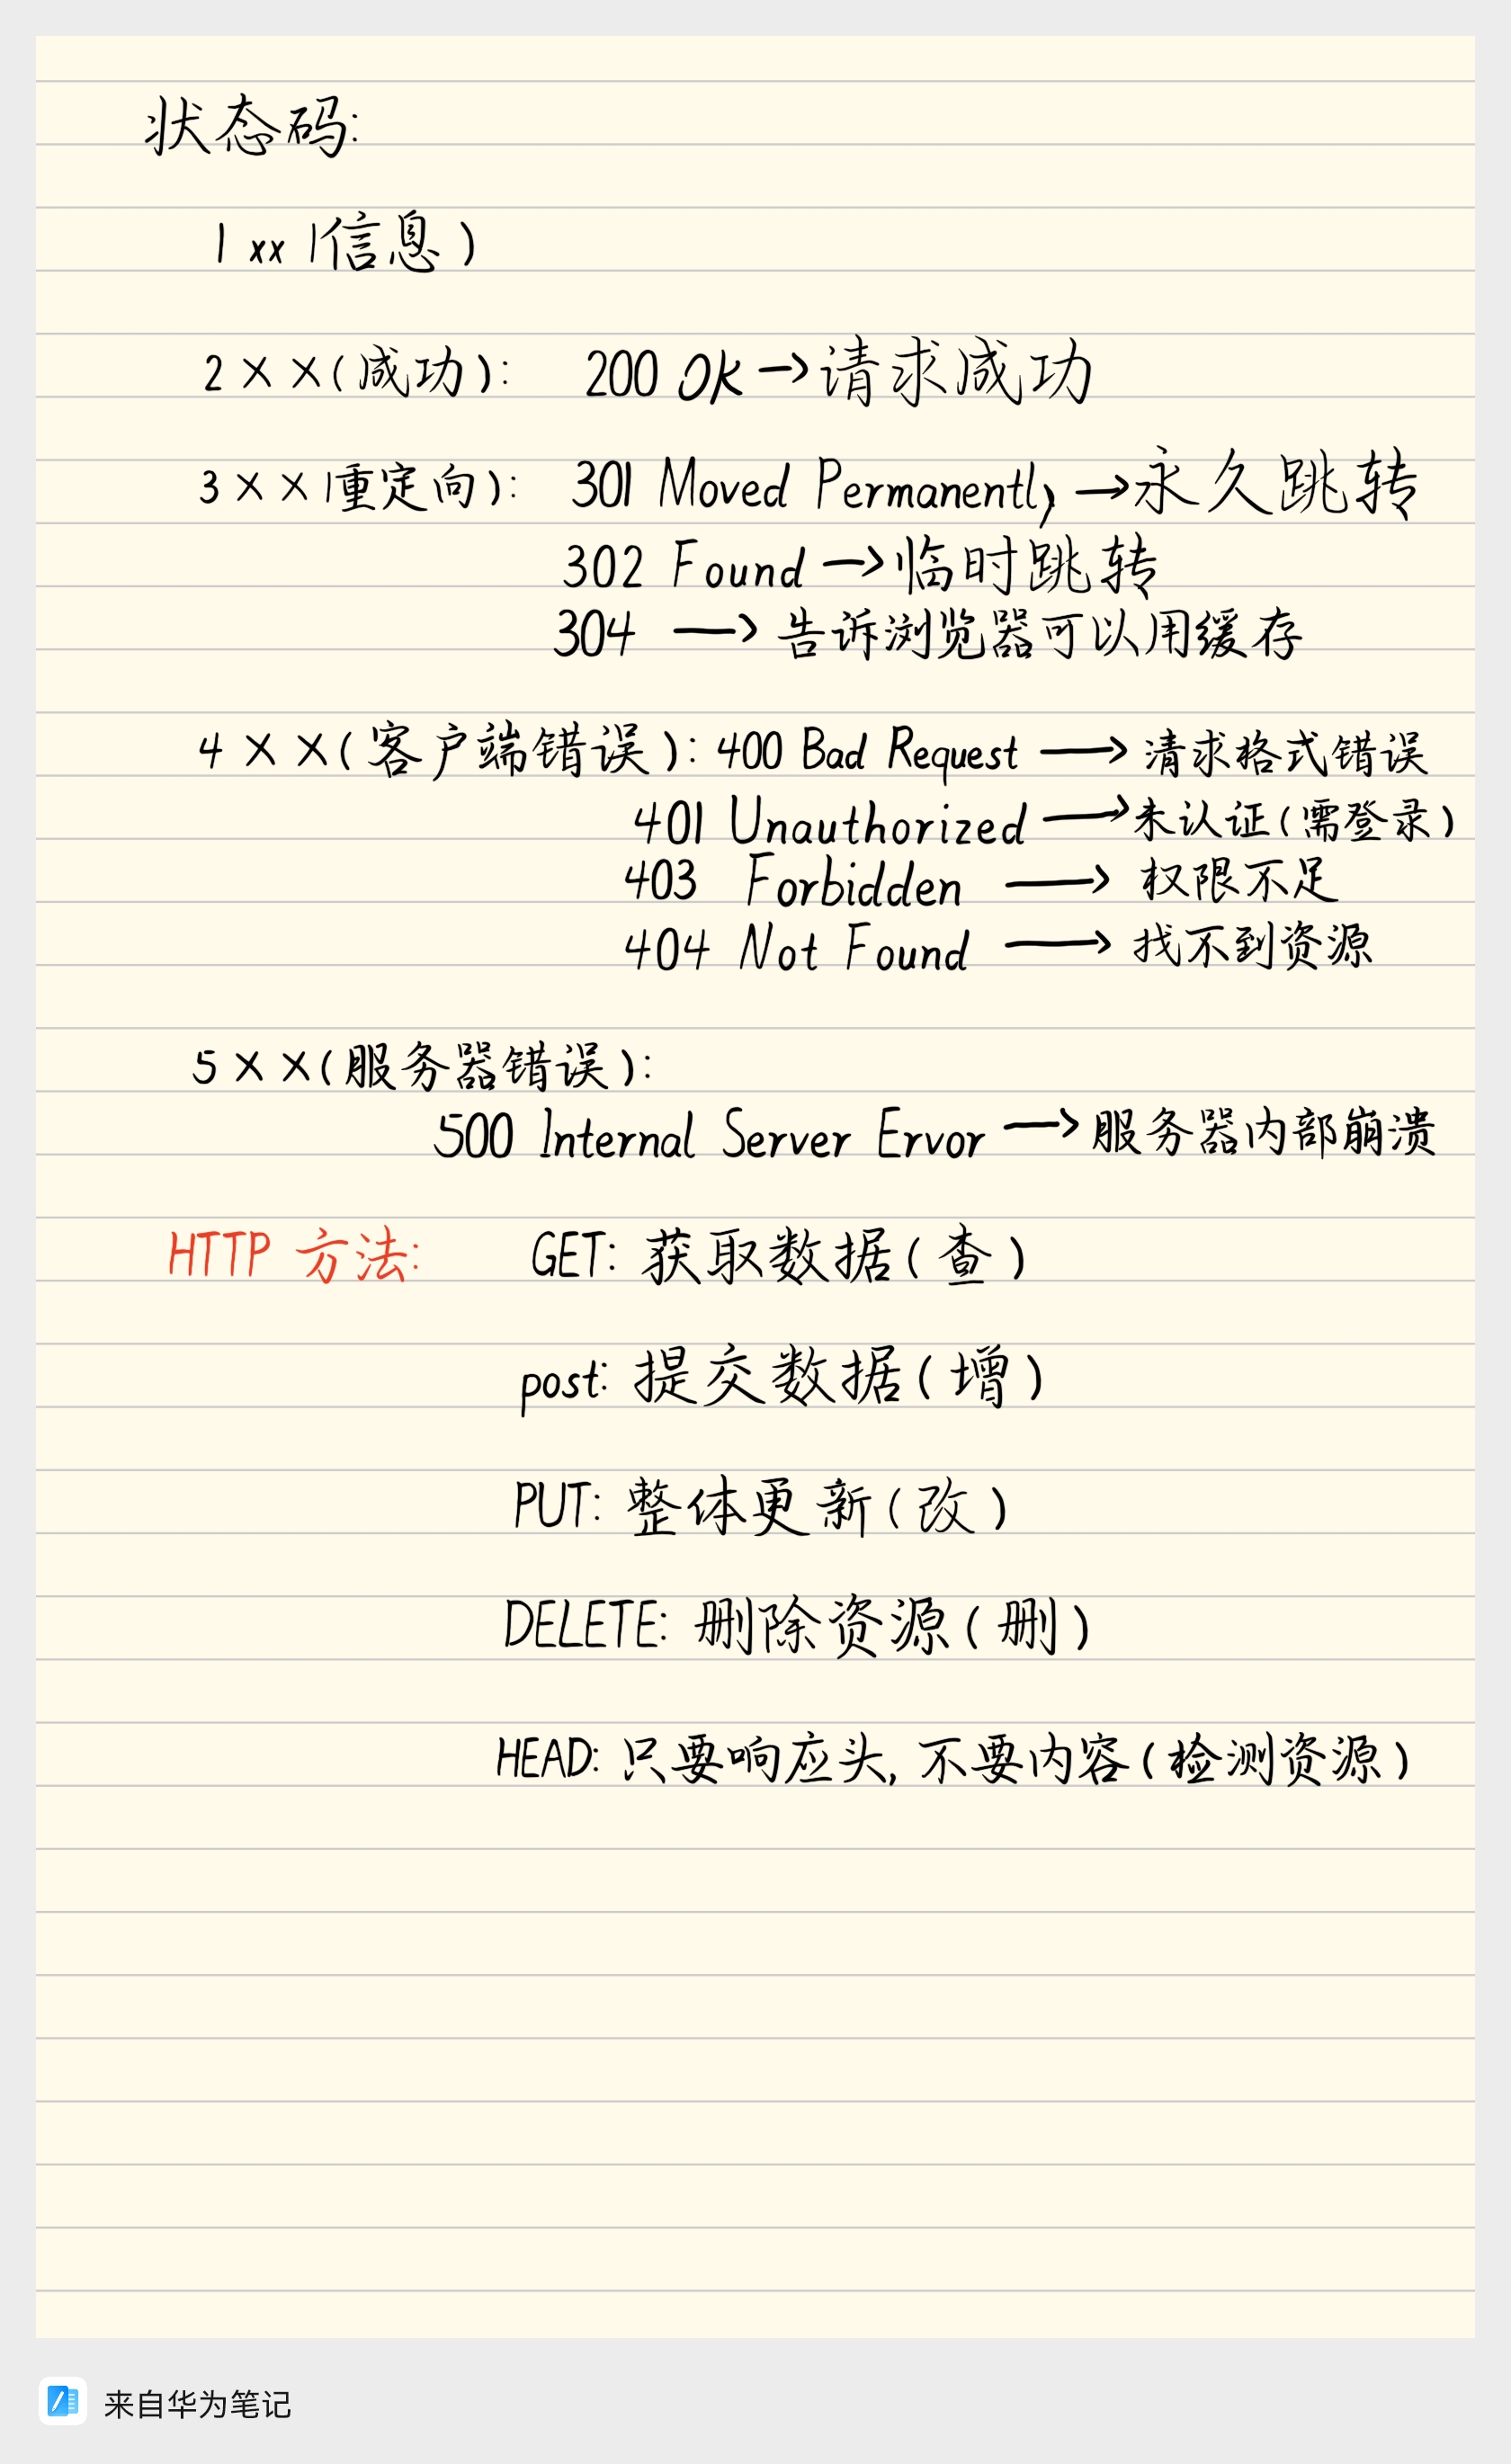 状态码:
1 xx (信息)
2 XX(成功): 200 OK→请求成功
3 XX(重定向): 301 Moved Permanently→永久跳转
302 Found→临时跳转
304 →告诉浏览器可以用缓存
4 XX(客户端错误): 400 Bad Request→请求格式错误
401 Unauthorized→未认证(需登录)
403 Forbidden→权限不足
404 Not Found→找不到资源
5 XX(服务器错误):
500 Internal Server Error→服务器内部崩溃
HTTP 方法: GET: 获取数据(查)
post: 提交数据(增)
PUT: 整体更新(改)
DELETE: 删除资源(删)
HEAD: 只要响应头, 不要内容(检测资源)
来自华为笔记